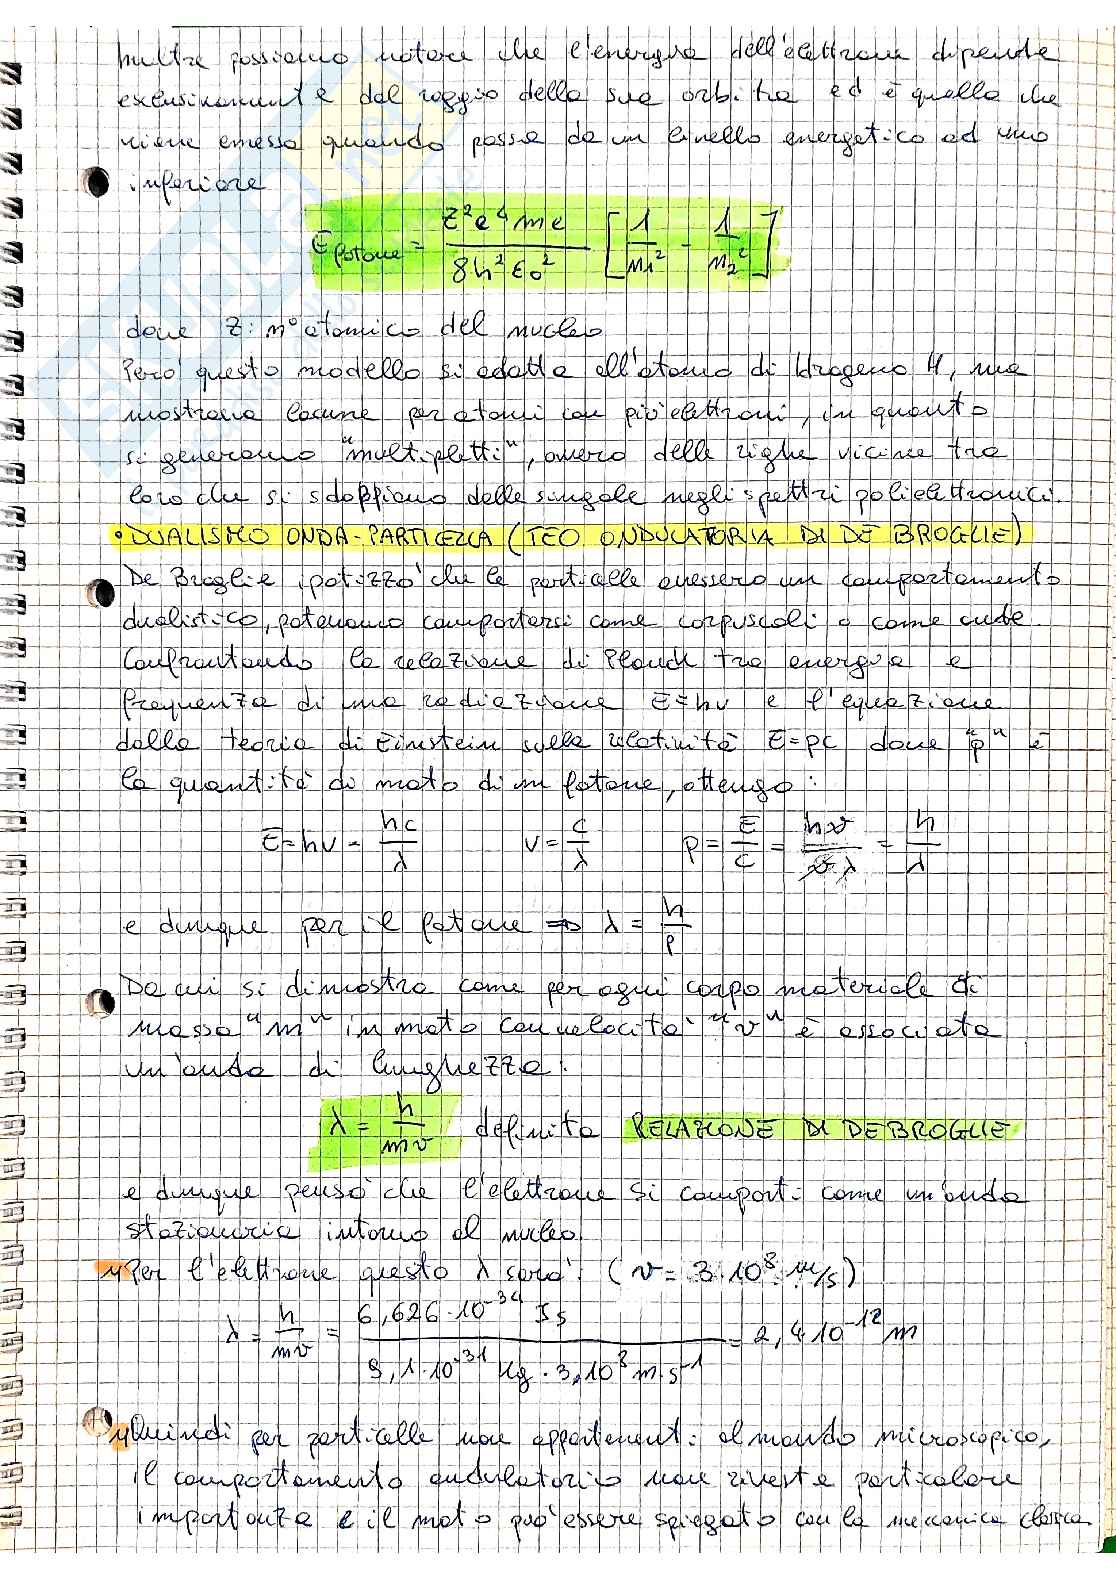 Inoltre possiamo notare che l'energia dell'elettrone dipende
esclusivamente dal raggio della sua orbita ed è quella che
viene emessa quando passa da un livello energetico ad uno
inferiore
E fotone = Z²e⁴me / 8h²ε₀² [1/n₁² - 1/n₂²]
dove Z: n° atomico del nucleo
Però questo modello si adatta all'atomo di Idrogeno H, ma
mostrava lacune per atomi con più elettroni, in quanto
si generano "multipletti", ovvero delle righe vicine tra
loro che si sdoppiano dalle singole negli spettri polielettronici.
• DUALISMO ONDA-PARTICELLA (TEO ONDULATORIA DI DE BROGLIE)
De Broglie ipotizzò che le particelle avessero un comportamento
dualistico, potevano comportarsi come corpuscoli o come onde.
Confrontando la relazione di Planck tra energia e
frequenza di una radiazione E=hν e l'equazione
dalla teoria di Einstein sulla relatività E=pc dove "p" è
la quantità di moto di un fotone, ottengo:
E=hν = hc/λ ν = c/λ p = E/c = hν/νλ = h/λ
e dunque per il fotone ⇒ λ = h/p
Da cui si dimostra come per ogni corpo materiale di
massa "m" in moto con velocità "v" è associata
un'onda di lunghezza:
λ = h/mv definita RELAZIONE DI DE BROGLIE
e dunque pensò che l'elettrone si comporti come un'onda
stazionaria intorno al nucleo.
Per l'elettrone questo λ sarà: (v = 3·10⁸ m/s)
λ = h/mv = 6,626·10⁻³⁴ Js / 9,1·10⁻³¹ Kg · 3,10⁸ m·s⁻¹ = 2,4 10⁻¹² m
Quindi per particelle non appartenenti al mondo microscopico,
il comportamento ondulatorio non riveste particolare
importanza e il moto può essere spiegato con la meccanica classica